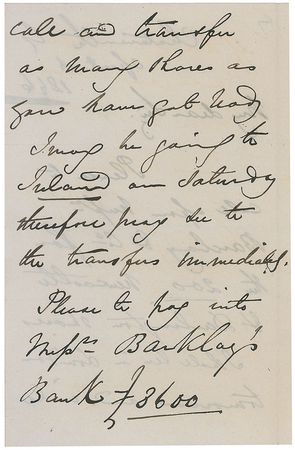 cate and transfer
as many shares as
you have got ready
I may be going to
Ireland on Saturday
therefore pray see to
the transfers immediately.
Please to pay into
Messrs Barklay's
Bank £3600